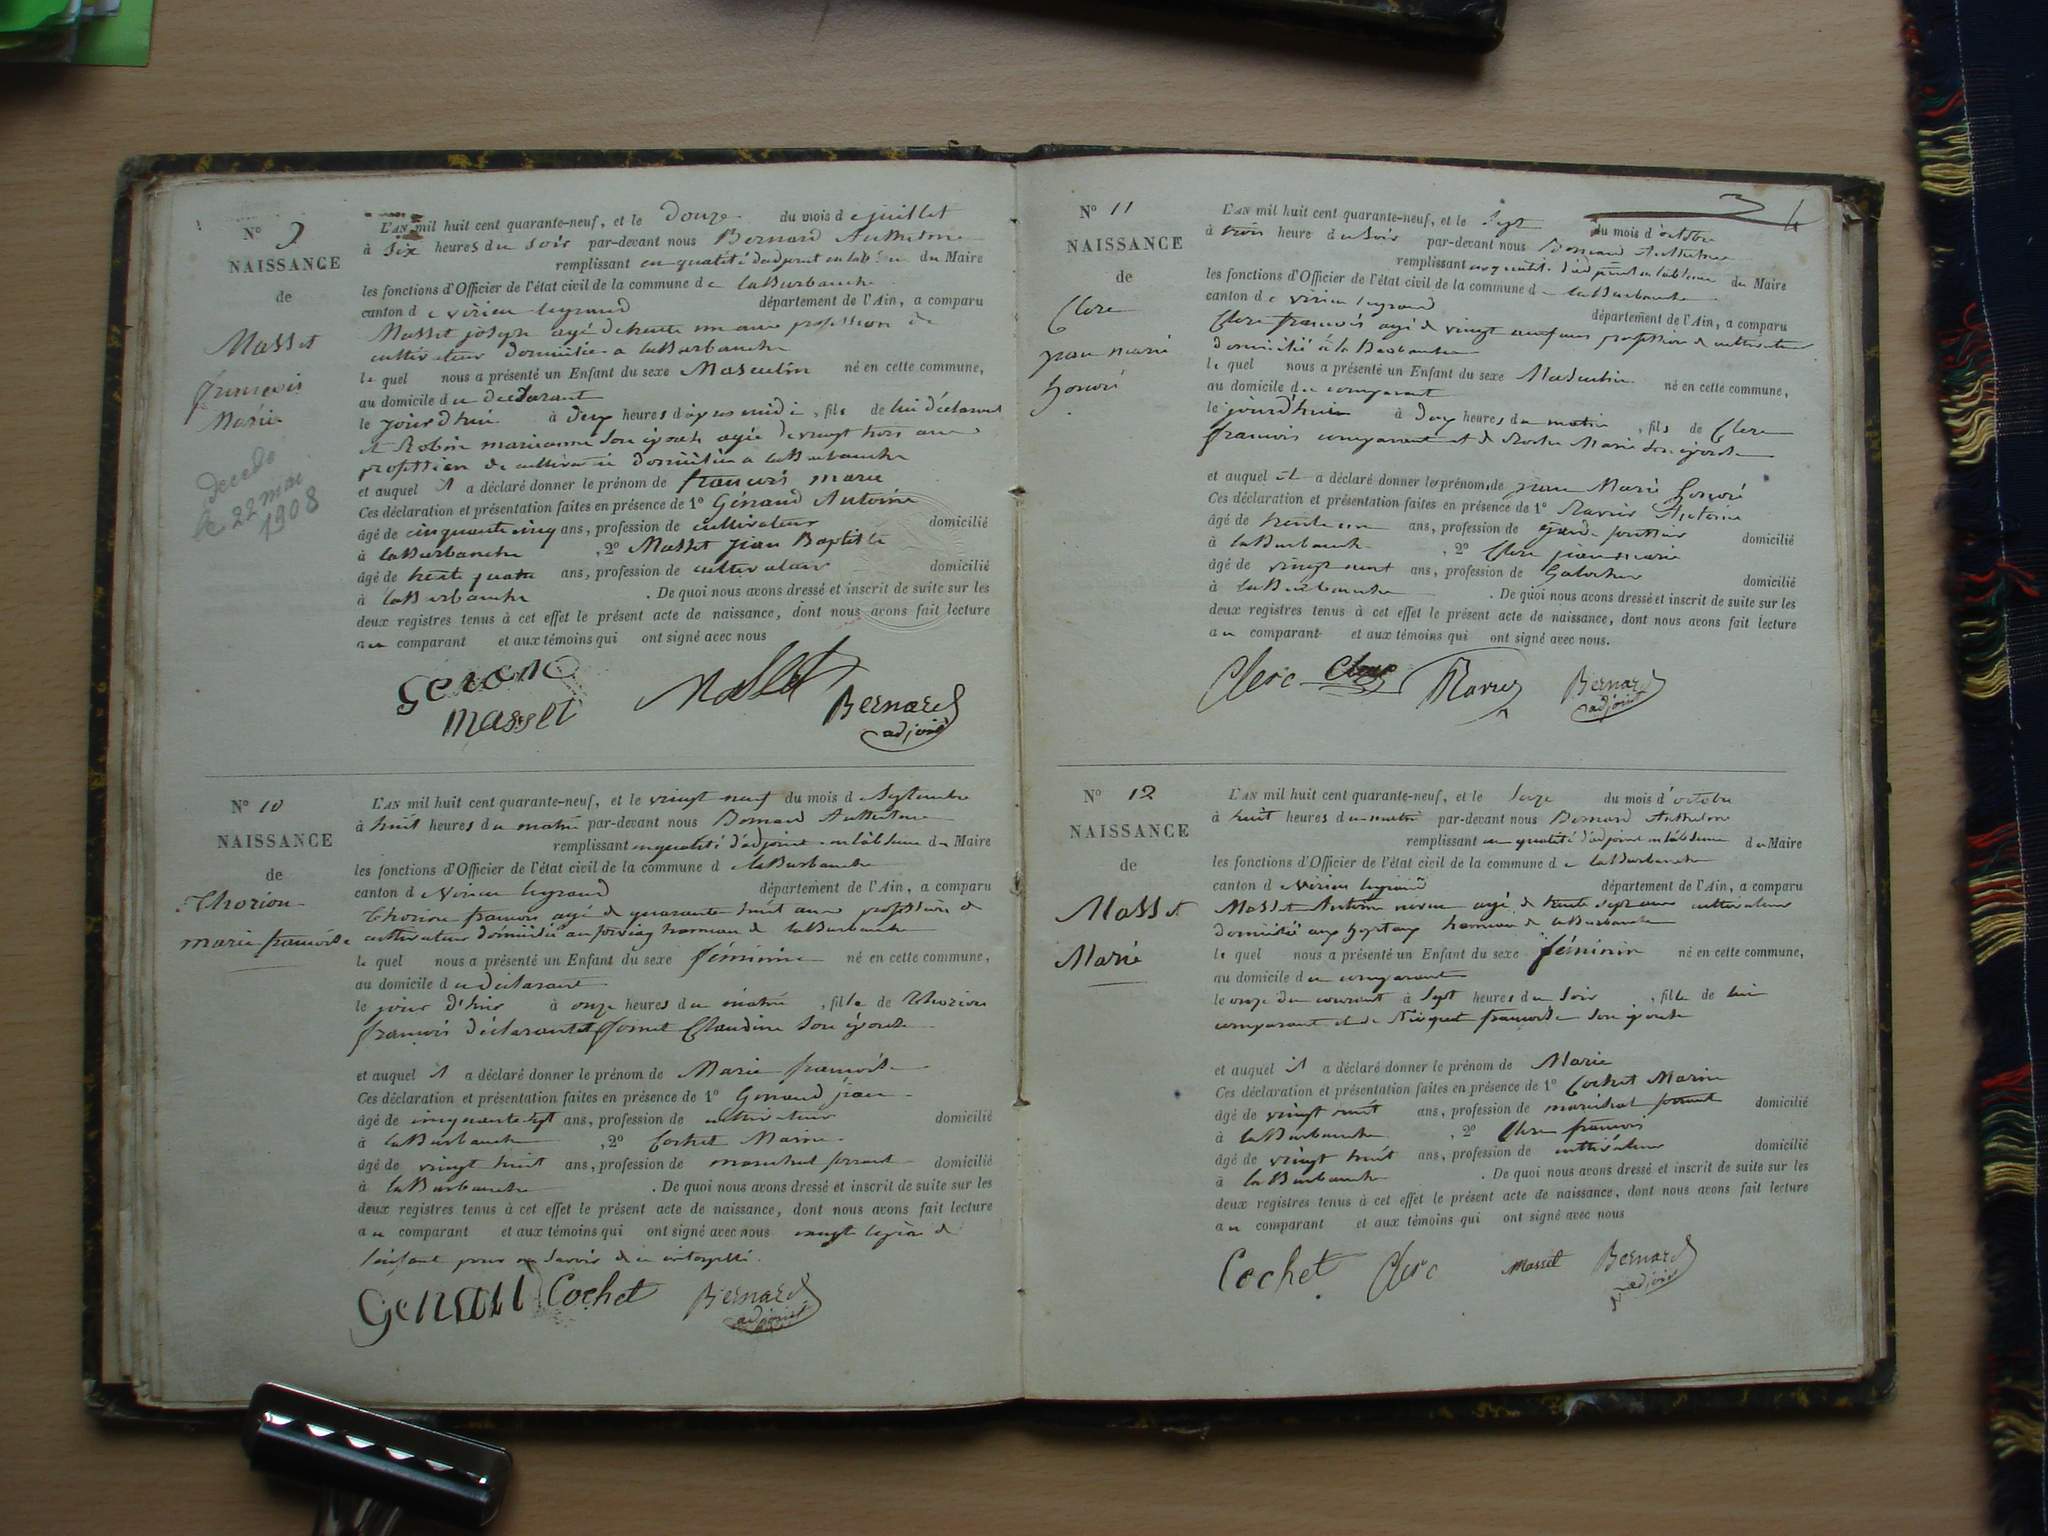 N° 9
NAISSANCE
de
Masset
françois
Marie
decede
le 22 mai
1908
L'AN mil huit cent quarante-neuf, et le douze du mois de juillet
à six heures du soir par-devant nous Bernard Anthelme
remplissant en qualité d'adjoint du Maire
les fonctions d'Officier de l'état civil de la commune de laBurbanche
canton de virieu legrand département de l'Ain, a comparu
Masset joseph agé de trente un ans profession de
cultivateur domicilié a laBurbanche
le quel nous a présenté un Enfant du sexe Masculin né en cette commune,
au domicile du declarant
le jourd'hui à deux heures d'apres midi, fils de lui déclarant
et Robin marianne son épouse agée de vingt trois ans
profession de domiciliée a laBurbanche
et auquel il a déclaré donner le prénom de françois marie
Ces déclaration et présentation faites en présence de 1° Génand Antoine
âgé de cinquante cinq ans, profession de cultivateur domicilié
à laBurbanche, 2° Masset jean Baptiste
âgé de trente quatre ans, profession de cultivateur domicilié
à laBurbanche. De quoi nous avons dressé et inscrit de suite sur les
deux registres tenus à cet effet le présent acte de naissance, dont nous avons fait lecture
au comparant et aux témoins qui ont signé avec nous
Masset
masset Bernard
adjoint
N° 10
NAISSANCE
de
Thorion
marie françoise
L'AN mil huit cent quarante-neuf, et le vingt neuf du mois de Septembre
à huit heures du matin par-devant nous Bernard Anthelme
remplissant en qualité d'adjoint du Maire
les fonctions d'Officier de l'état civil de la commune de laBurbanche
canton de Virieu legrand département de l'Ain, a comparu
Thorion francois agé de quarante huit ans profession de
cultivateur domicilié hameau de laBurbanche
le quel nous a présenté un Enfant du sexe féminin né en cette commune,
au domicile du déclarant
le jour d'hier à onze heures du matin, fille de Thorion
françois déclarant et Claudine son épouse
et auquel il a déclaré donner le prénom de Marie françoise
Ces déclaration et présentation faites en présence de 1° Genand jean
âgé de cinquante sept ans, profession de cultivateur domicilié
à laBurbanche, 2° Cochet Marin
âgé de vingt huit ans, profession de marechal ferrant domicilié
à laBurbanche. De quoi nous avons dressé et inscrit de suite sur les
deux registres tenus à cet effet le présent acte de naissance, dont nous avons fait lecture
au comparant et aux témoins qui ont signé avec nous de
l'enfant pour ne savoir de ce interpellé.
Genand Cochet Bernard
adjoint
N° 11
NAISSANCE
de
Clerc
jean marie
honoré
L'AN mil huit cent quarante-neuf, et le sept du mois d'octobre
à trois heure du soir par-devant nous Bernard Anthelme
remplissant en qualité d'adjoint du Maire
les fonctions d'Officier de l'état civil de la commune de laBurbanche
canton de virieu legrand département de l'Ain, a comparu
Clerc francois agé de vingt neuf ans profession de cultivateur
domicilié à la Burbanche
le quel nous a présenté un Enfant du sexe Masculin né en cette commune,
au domicile du comparant
le jourd'hui à deux heures du matin, fils de Clerc
francois comparant et de Marie son épouse
et auquel il a déclaré donner le prénom de jean Marie honoré
Ces déclaration et présentation faites en présence de 1° Antoine
âgé de trente un ans, profession de domicilié
à laBurbanche, 2° Clerc jean marie
âgé de vingt ans, profession de domicilié
à laBurbanche. De quoi nous avons dressé et inscrit de suite sur les
deux registres tenus à cet effet le présent acte de naissance, dont nous avons fait lecture
au comparant et aux témoins qui ont signé avec nous.
Clerc Clerc Bernard
adjoint
N° 12
NAISSANCE
de
Masset
Marie
L'AN mil huit cent quarante-neuf, et le du mois d'octobre
à huit heures du matin par-devant nous Bernard Anthelme
remplissant en qualité d'adjoint du Maire
les fonctions d'Officier de l'état civil de la commune de laBurbanche
canton de Virieu legrand département de l'Ain, a comparu
Masset Antoine agé de trente sept ans cultivateur
domicilié hameau de laBurbanche
le quel nous a présenté un Enfant du sexe féminin né en cette commune,
au domicile du comparant
le onze du courant à sept heures du soir, fille de lui
comparant et de francoise son épouse
et auquel il a déclaré donner le prénom de Marie
Ces déclaration et présentation faites en présence de 1° Cochet Marin
âgé de vingt huit ans, profession de maréchal ferrant domicilié
à laBurbanche, 2° Clerc francois
âgé de vingt huit ans, profession de cultivateur domicilié
à laBurbanche. De quoi nous avons dressé et inscrit de suite sur les
deux registres tenus à cet effet le présent acte de naissance, dont nous avons fait lecture
au comparant et aux témoins qui ont signé avec nous
Cochet Clerc Masset Bernard
adjoint